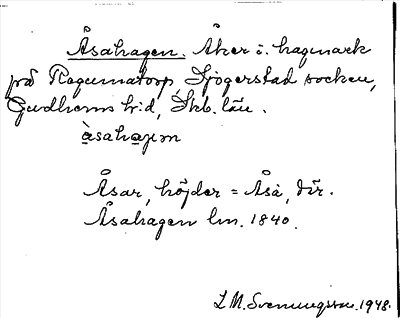 Åsahagen. Åker o. hagmark
på Ragumatorp, Sjögerstad socken,
Gudhems h:d, Skb. län.
åsahaɡɛn
Åsar, höjder = Åsa, dir.
Åsahagen lm. 1840.
L M. Svenungsson. 1948.